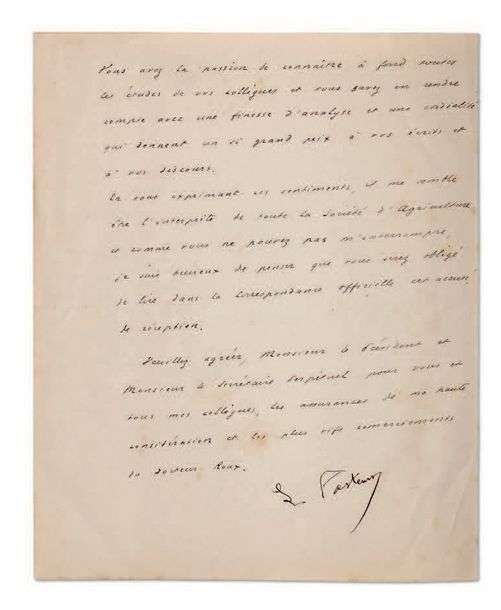 Vous avez la passion de connaître à fond toutes
les études de vos collègues et vous savez en rendre
compte avec une finesse d'analyse et une cordialité
qui donnent un si grand prix à vos écrits et
à vos discours.
En vous exprimant ces sentiments, il me semble
être l'interprète de toute la Société d'Agriculture
et comme vous ne pouvez pas m'interrompre,
je suis heureux de penser que vous serez obligé
de lire dans la Correspondance officielle cet accusé
de réception.
Veuillez agréer, Monsieur le Président et
Monsieur le Secrétaire Perpétuel pour vous et
tous mes collègues, les assurances de ma haute
considération et les plus vifs remerciements
du docteur Roux.
L Pasteur